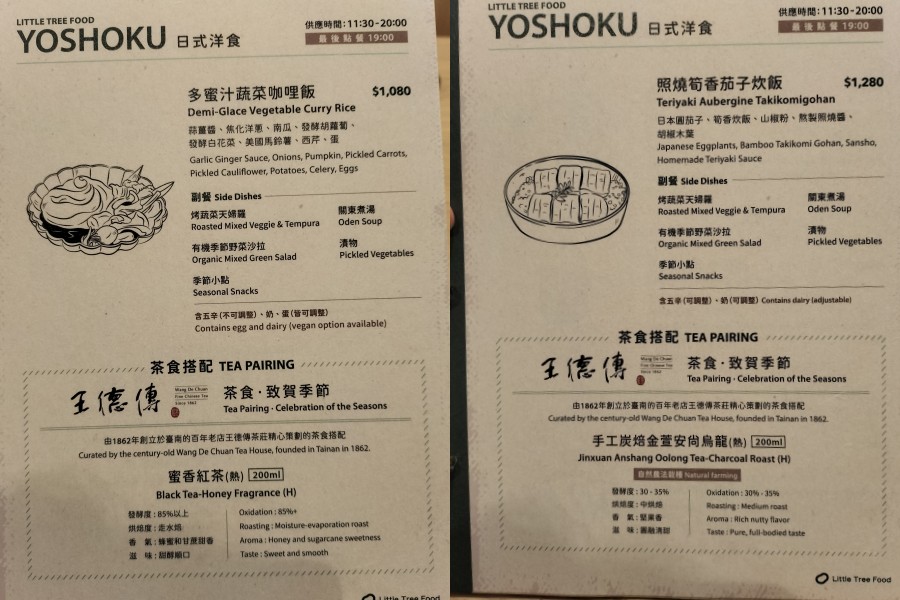 LITTLE TREE FOOD
YOSHOKU 日式洋食
供應時間:11:30-20:00
最後點餐 19:00
多蜜汁蔬菜咖哩飯 $1,080
Demi-Glace Vegetable Curry Rice
蒜薑醬、焦化洋蔥、南瓜、發酵胡蘿蔔、
發酵白花菜、美國馬鈴薯、西芹、蛋
Garlic Ginger Sauce, Onions, Pumpkin, Pickled Carrots,
Pickled Cauliflower, Potatoes, Celery, Eggs
副餐 Side Dishes
烤蔬菜天婦羅 關東煮湯
Roasted Mixed Veggie & Tempura Oden Soup
有機季節野菜沙拉 漬物
Organic Mixed Green Salad Pickled Vegetables
季節小點
Seasonal Snacks
含五辛(不可調整)、奶、蛋(皆可調整)
Contains egg and dairy (vegan option available)
茶食搭配 TEA PAIRING
王德傳
Wang De Chuan
Fine Chinese Tea
Since 1862
茶食·致賀季節
Tea Pairing · Celebration of the Seasons
由1862年創立於臺南的百年老店王德傳茶莊精心策劃的茶食搭配
Curated by the century-old Wang De Chuan Tea House, founded in Tainan in 1862.
蜜香紅茶(熱) 200ml
Black Tea-Honey Fragrance (H)
發酵度:85%以上 Oxidation : 85%+
烘焙度:走水焙 Roasting : Moisture-evaporation roast
香 氣:蜂蜜和甘蔗甜香 Aroma : Honey and sugarcane sweetness
滋 味:甜醇順口 Taste : Sweet and smooth
Little Tree Food
LITTLE TREE FOOD
YOSHOKU 日式洋食
供應時間:11:30-20:00
最後點餐 19:00
照燒筍香茄子炊飯 $1,280
Teriyaki Aubergine Takikomigohan
日本圓茄子、筍香炊飯、山椒粉、熬製照燒醬、
胡椒木葉
Japanese Eggplants, Bamboo Takikomi Gohan, Sansho,
Homemade Teriyaki Sauce
副餐 Side Dishes
烤蔬菜天婦羅 關東煮湯
Roasted Mixed Veggie & Tempura Oden Soup
有機季節野菜沙拉 漬物
Organic Mixed Green Salad Pickled Vegetables
季節小點
Seasonal Snacks
含五辛(可調整)、奶(可調整) Contains dairy (adjustable)
茶食搭配 TEA PAIRING
王德傳
Wang De Chuan
Fine Chinese Tea
Since 1862
茶食·致賀季節
Tea Pairing · Celebration of the Seasons
由1862年創立於臺南的百年老店王德傳茶莊精心策劃的茶食搭配
Curated by the century-old Wang De Chuan Tea House, founded in Tainan in 1862.
手工炭焙金萱安尚烏龍(熱) 200ml
Jinxuan Anshang Oolong Tea-Charcoal Roast (H)
自然農法栽種 Natural farming
發酵度:30 - 35% Oxidation : 30% - 35%
烘焙度:中烘焙 Roasting : Medium roast
香 氣:堅果香 Aroma : Rich nutty flavor
滋 味:圓融清甜 Taste : Pure, full-bodied taste
Little Tree Food